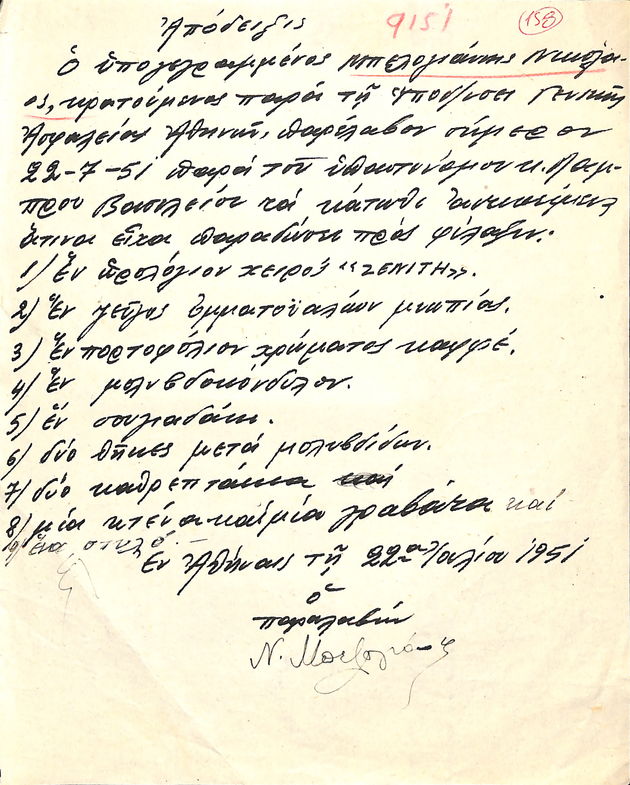 Ἀπόδειξις 9151 158
Ὁ ὑπογεγραμμένος Μπελογιάννης Νικόλα-
ος, κρατούμενος παρά τῇ Ὑποδ/νσει Γενικῆς
Ἀσφαλείας Ἀθηνῶν, παρέλαβον σήμερον
22-7-51 παρά τοῦ ὑπαστυνόμου κ. Λάμ-
πρου Βασιλείου τά κάτωθι ἀντικείμενα
ἅτινα εἶχα παραδώσει πρός φύλαξιν:
1) Ἕν ὡρολόγιον χειρός «ZENITH».
2) Ἕν ζεῦγος ὀμματοϋαλίων μυωπίας.
3) Ἕν πορτοφόλιον χρώματος καφφέ.
4) Ἕν μολυβδοκόνδυλον.
5) ἕν σουγιαδάκι.
6) δύο θῆκες μετά μολυβδίδων.
7) δύο καθρεπτάκια καί
8) μία κτένα καί μία γραβάτα καί
9) ἕνα στυλό. -
Ἐν Ἀθήναις τῇ 22α Ἰουλίου 1951
ὁ
παραλαβών
Ν. Μπελογιάννης